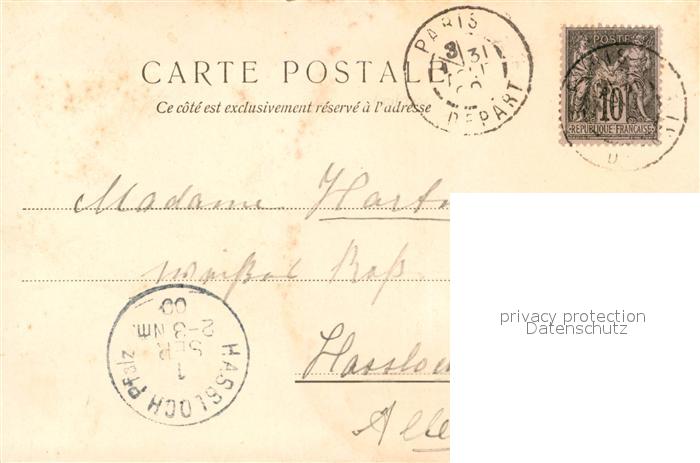 CARTE POSTALE
Ce côté est exclusivement réservé à l'adresse
PARIS
31
DEPART
POSTE
10
REPUBLIQUE FRANÇAISE
Madame Hart
Roß
Hassloc
Alle
HASSLOCH Pfalz
1
SEP
2-3 Nm.
00
privacy protection
Datenschutz